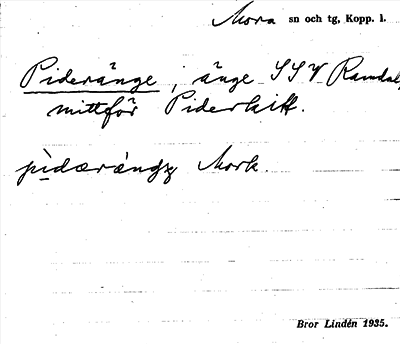 Mora sn och tg, Kopp. l.
Pideränge, änge SSV Ramdal,
mittför Piderkitt.
Mork.
Bror Lindén 1935.